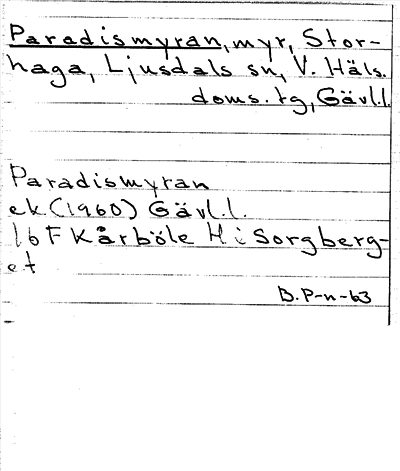 Paradismyran, myr, Stor-
haga, Ljusdals sn, V. Häls.
doms. tg, Gävl.l.
Paradismyran
ek (1960) Gävl.l.
16F Kårböle H i Sorgberg-
et
B.P-n-63